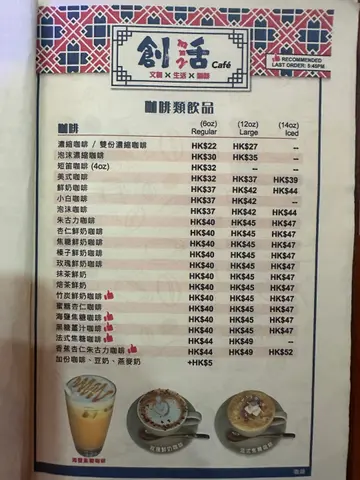 創活 Café
文創 × 生活 × 咖啡
RECOMMENDED
LAST ORDER: 5:45PM
咖啡類飲品
咖啡 (6oz) Regular (12oz) Large (14oz) Iced
濃縮咖啡 / 雙份濃縮咖啡 HK$22 HK$27 --
泡沫濃縮咖啡 HK$30 HK$35 --
短笛咖啡 (4oz) HK$32 -- --
美式咖啡 HK$32 HK$37 HK$39
鮮奶咖啡 HK$37 HK$42 HK$44
小白咖啡 HK$37 HK$42 --
泡沫咖啡 HK$37 HK$42 HK$44
朱古力咖啡 HK$40 HK$45 HK$47
杏仁鮮奶咖啡 HK$40 HK$45 HK$47
焦糖鮮奶咖啡 HK$40 HK$45 HK$47
榛子鮮奶咖啡 HK$40 HK$45 HK$47
玫瑰鮮奶咖啡 HK$40 HK$45 HK$47
抹茶鮮奶 HK$40 HK$45 HK$47
焙茶鮮奶 HK$40 HK$45 HK$47
竹炭鮮奶咖啡 HK$40 HK$45 HK$47
蜜糖杏仁咖啡 HK$40 HK$45 HK$47
海鹽焦糖咖啡 HK$40 HK$45 HK$47
黑糖薑汁咖啡 HK$40 HK$45 HK$47
法式焦糖咖啡 HK$44 HK$49 --
香蕉杏仁朱古力咖啡 HK$44 HK$49 HK$52
加份咖啡、豆奶、燕麥奶 +HK$5
海鹽焦糖咖啡
玫瑰鮮奶咖啡
法式焦糖咖啡